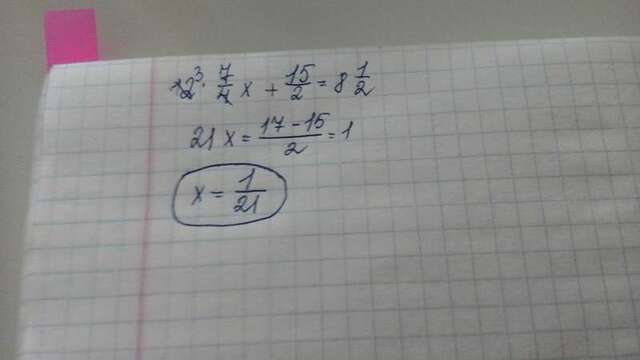 12³ · 7/4 x + 15/2 = 8 1/2
21 x = 17 - 15/2 = 1
x = 1/21